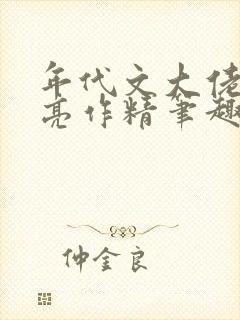 年代文大佬
亮作精笔趣
仲金良